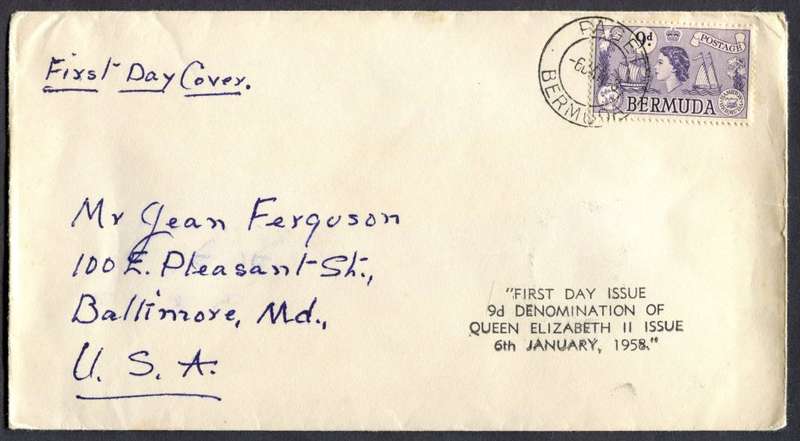 First Day Cover.
PAGET
9d.
POSTAGE
BERMUDA
BERMUDA
Mr Jean Ferguson
100 E. Pleasant St.,
Baltimore, Md.,
U. S. A.
"FIRST DAY ISSUE
9d DENOMINATION OF
QUEEN ELIZABETH II ISSUE
6th JANUARY, 1958."